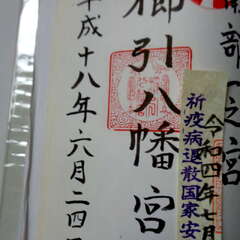 南部一之宮
令和四年七月
祈疫病退散国家安
櫛引八幡宮
平成十八年六月二四日